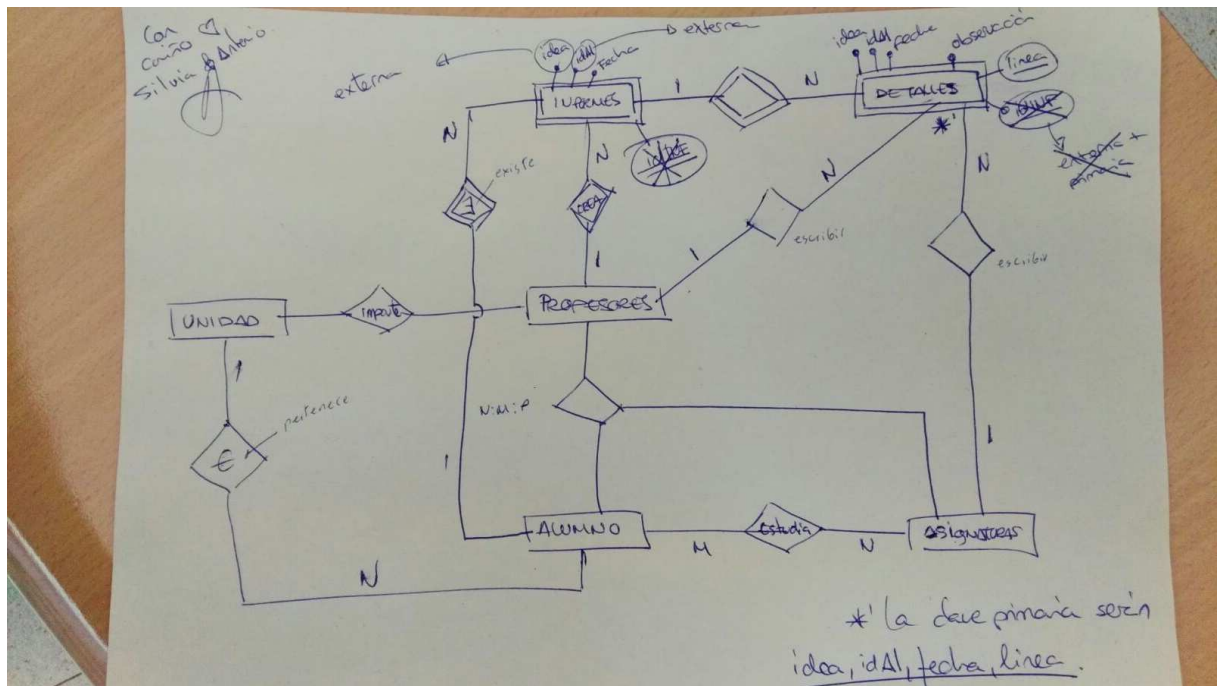 Con
cariño
Silvia & Antonio
externa
idea
idAl
Fecha
externa
INFORMES
1
N
idea
idAl
fecha
observación
linea
DETALLES
*'
externa +
primaria
N
existe
∃
N
CREA
1
N
1
escribir
N
escribir
UNIDAD
imparte
PROFESORES
1
pertenece
€
N:M:P
1
1
ALUMNO
M
estudia
N
ASIGNATURAS
N
*' La clave primaria serán
idea, idAl, fecha, linea.